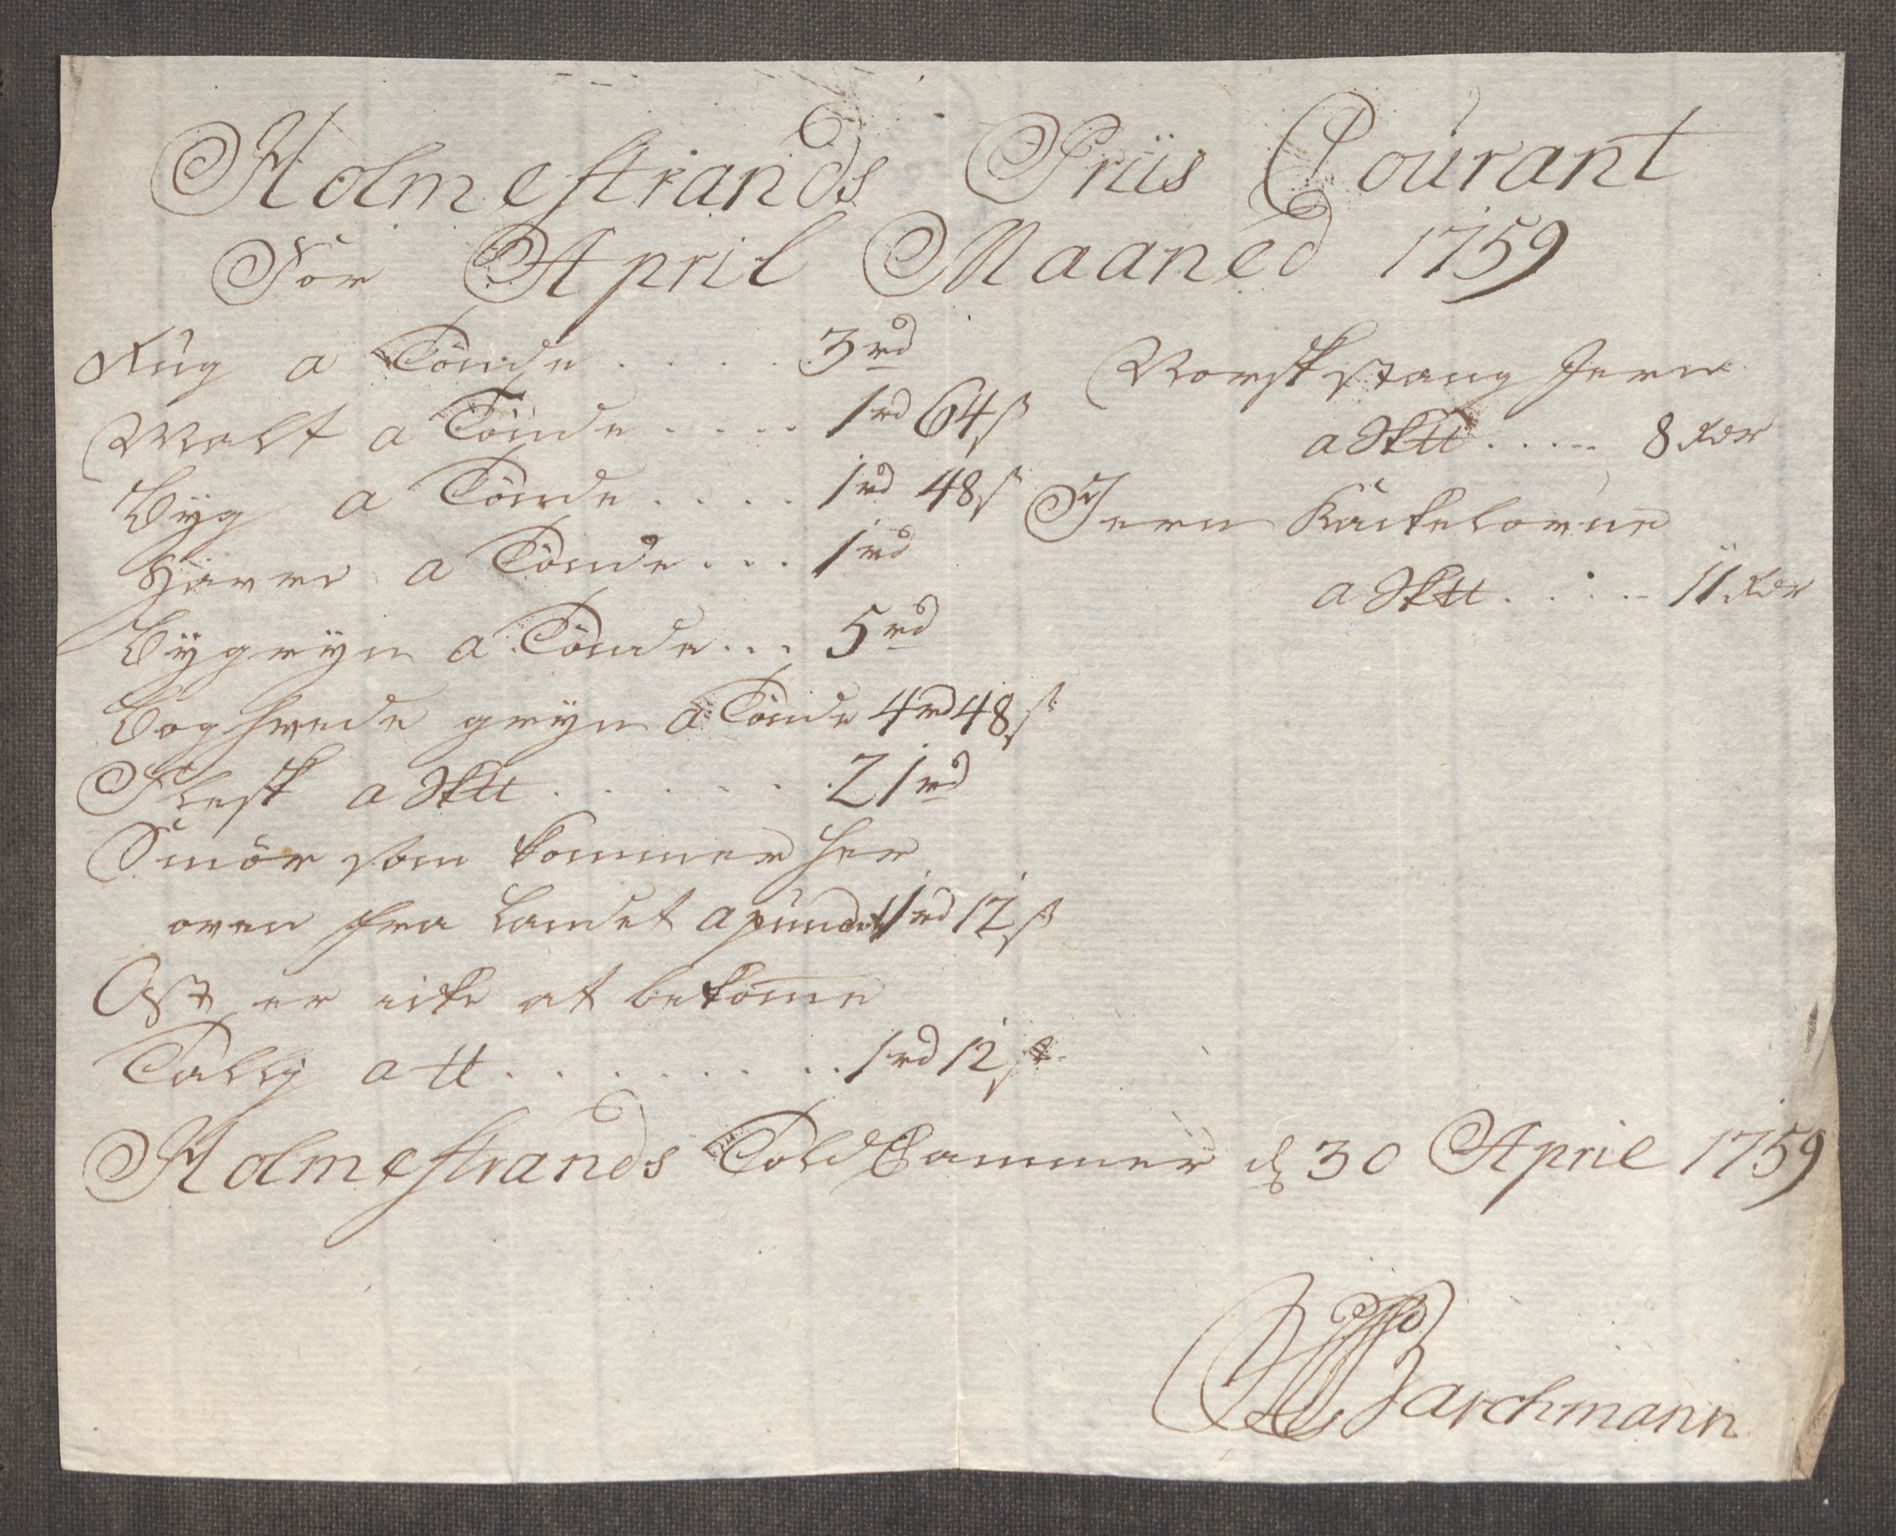 Holmestrands Priis Courant
For April Maaned 1759
Rúg a Tönde . . . . . 3 rd
Malt a Tönde . . . . . 1 rd 64 ß
Byg a Tönde . . . . . 1 rd 48 ß
Havre a Tönde . . . 1 rd
Bygryn a Tönde . . . 5 rd
Boghvede gryn a Tönde 4 rd 48 ß
Flesk a Sk℔ . . . . . . 21 rd
Smör som kommer her
oven fra Landet a pund 1 rd 12 ß
Ost er icke at bekome
Tallig a ℔ . . . . . . . . 1 rd 12 ß
Norsk stang Jern
a Sk℔ . . . . . 8 Rdr
Jern Kackelovne
a Sk℔ . . . . 11 Rdr
Holmestrands Told Cammer d 30 April 1759
Barchmann